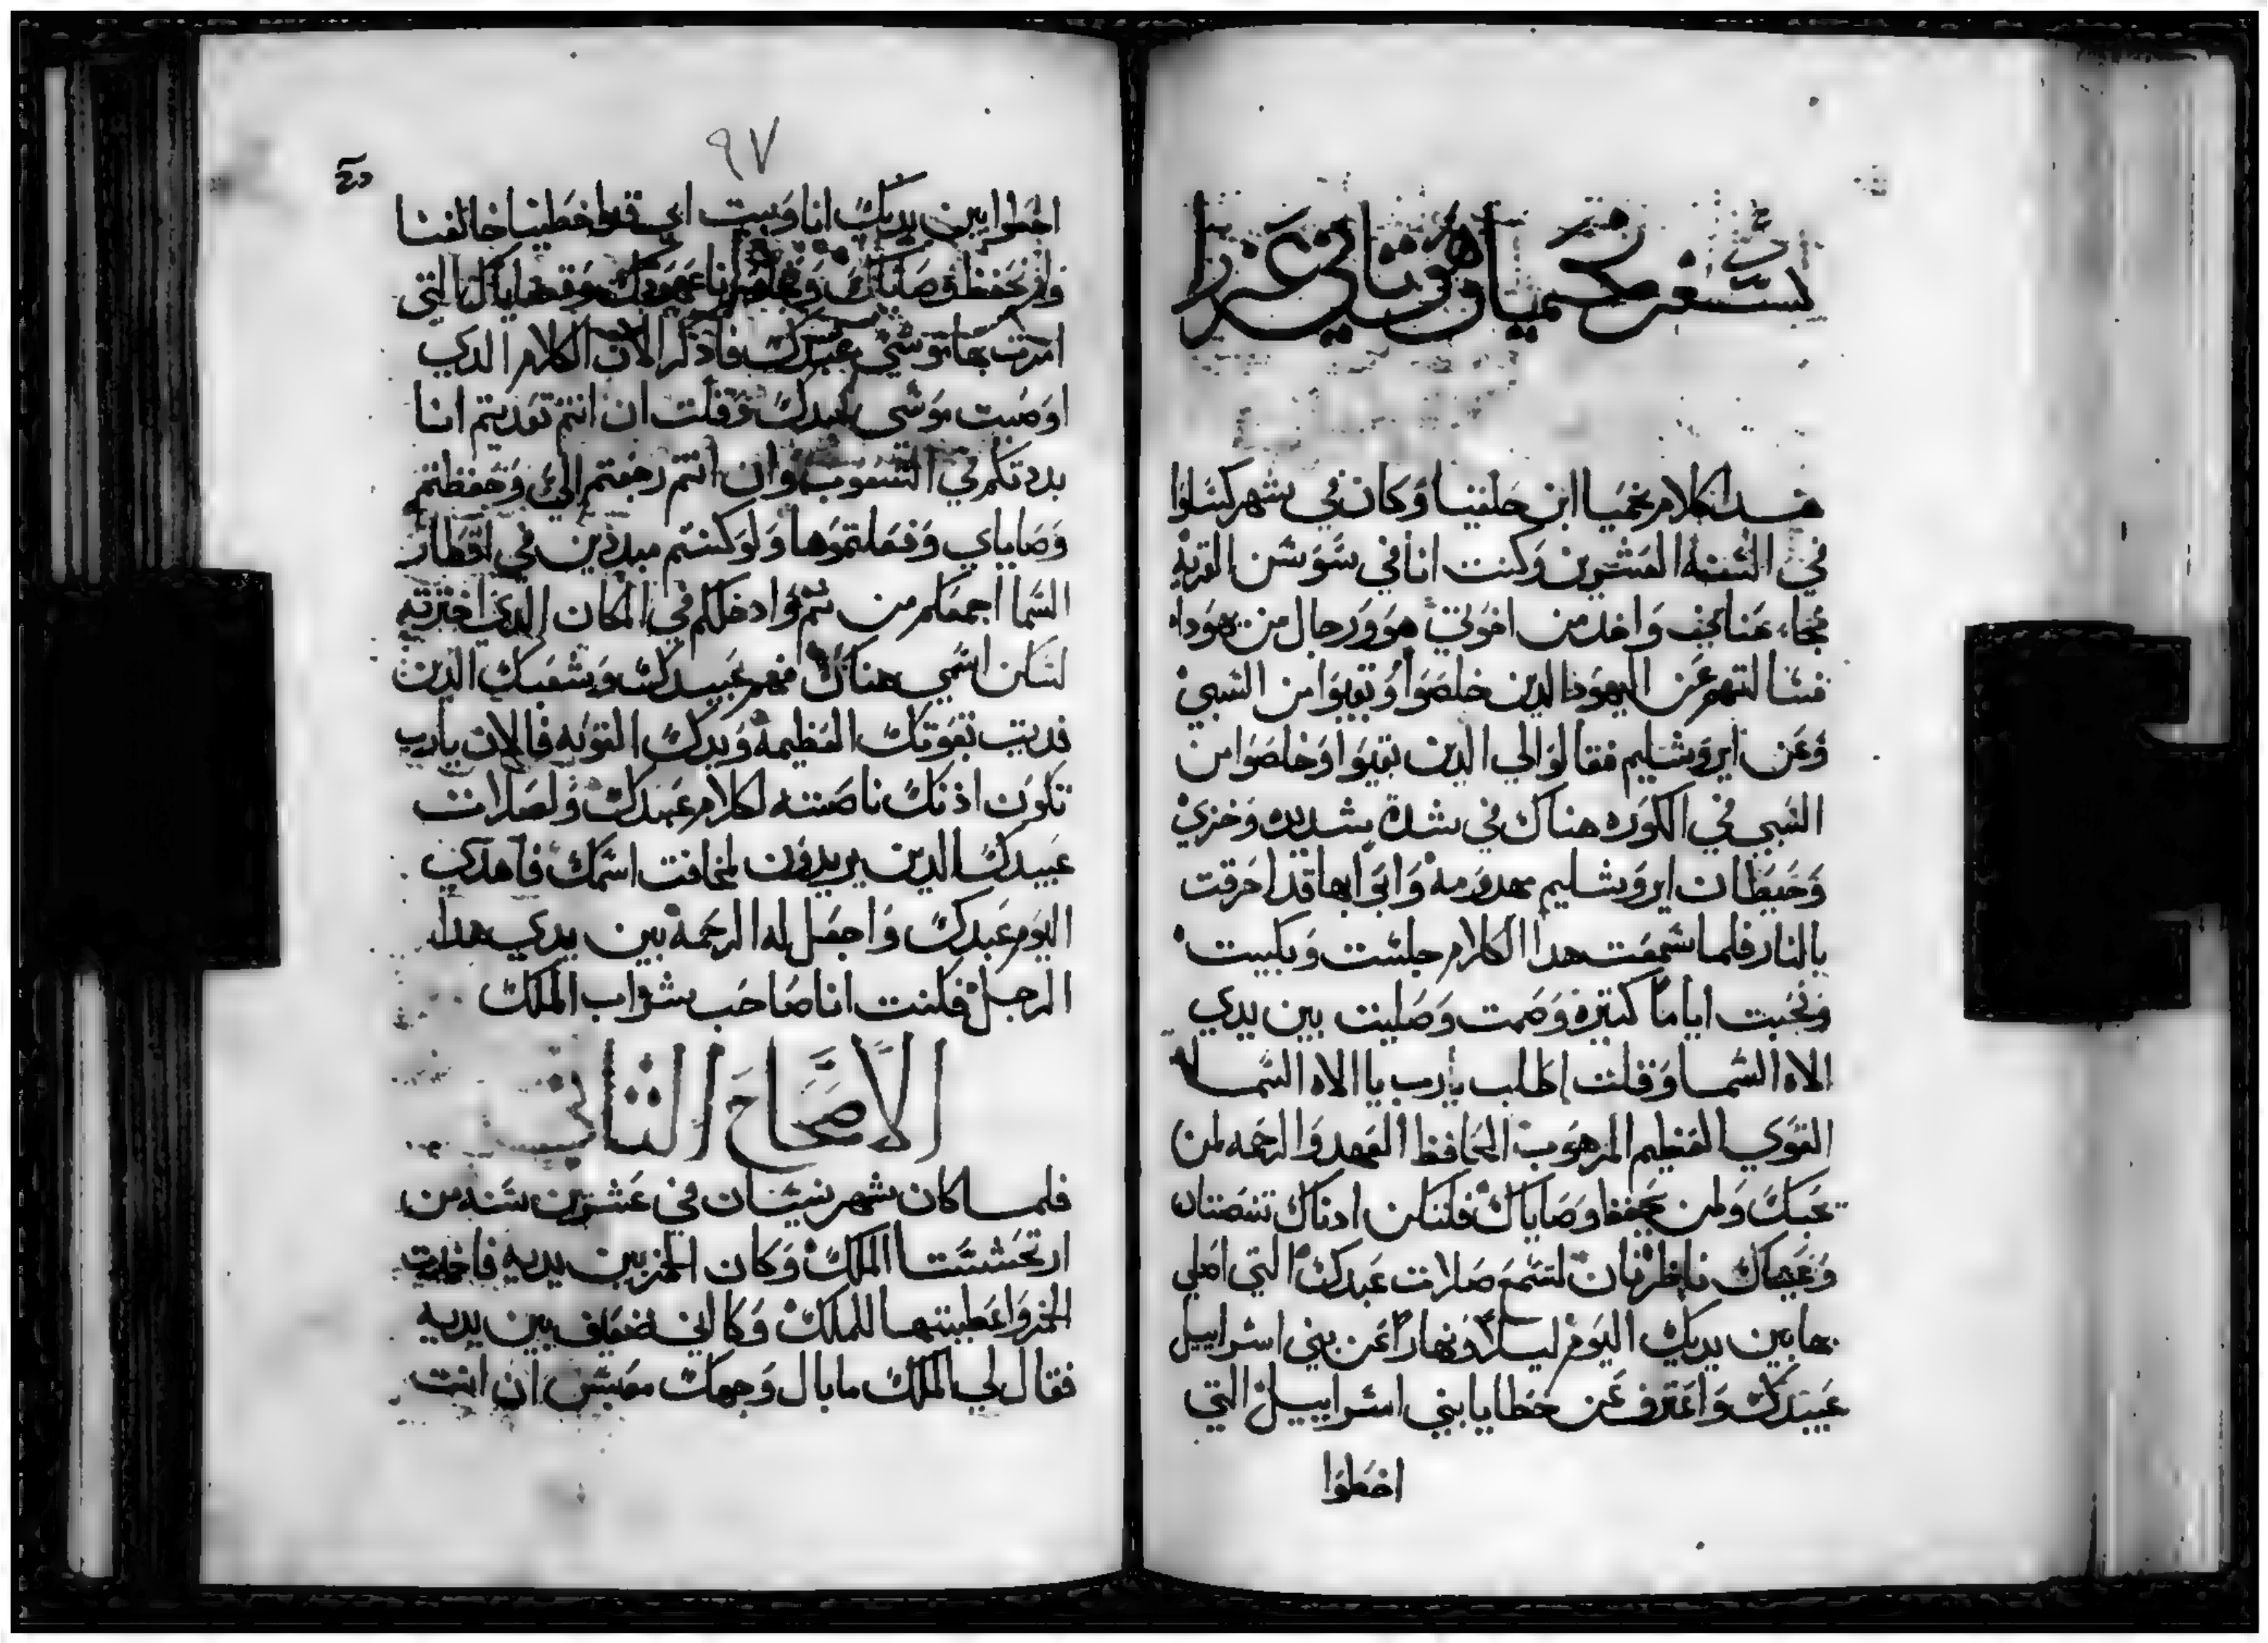 سفر نحميا وهو ثاني عزرا
هدا كلام نحميا ابن حلقيا وكان في شهر كسلوا
في السنه العشرين وكنت انا في سوسن القريه
فجاء واحد من اخوتي هو ورجال من يهودا
فسالتهم عن اليهود الدين خلصوا وبقيوا من السبي
وعن ايروشليم فقالوا لي الدين بقيوا وخلصوا من
السبي في الكوره هناك في شدة شديده وخزي
وحيطان ايروشليم مهدومة وابوابها قد احرقت
بالنار فلما سمعت هدا الكلام جلست وبكيت
ونحبت اياما كتيره وصمت وصليت بين يدي
الاه السما وقلت اطلب يارب يا الاه السما
القوي العظيم المرهوب الحافظ العهد والرحمه لمن
يحبك ولمن يحفظ وصاياك فلتكن ادناك تنصتان
وعيناك ناظرتان لتسمع صلات عبدك التي اصلي
بها بين يديك اليوم ليلا ونهارا عن بني اسراييل
عبيدك واعترف عن خطايا بني اسراييل التي
اخطوا
٩٧
اخطوا بين يديك انا وبيت ابي قد اخطينا خالفنا
ولم نحفظ وصاياك عهودك التي
امرت بها موسي عبدك فادكر الان الكلام الدي
اوصيت موسى عبدك وقلت ان انتم تعديتم انا
بددتكم في الشعوب وان انتم رجعتم الي وحفظتم
وصاياي وفعلتموها ولو كنتم مبددين في اقطار
السما اجمعكم من تم وادخلكم في المكان الدي اخترته
لتكن اسمي هناك فهم عبيدك وشعبك الدين
فديت بقوتك العظيمة ويدك القويه فالان يارب
تكون ادنك ناصته لكلام عبدك ولصلات
عبيدك الدين يريدون لمخافت اسمك فاهدي
اليوم عبدك واجعل له الرحمة بين يدي هدا
الرجل فكنت انا صاحب شراب الملك
الاصحاح التاني
فلما كان شهر نيسان في عشرين سنه من
ارتحششتا الملك وكان الخمر بين يديه فاخدت
الخمر واعطيتها للملك وكاني ضعيف بين يديه
فقال لي الملك ما بال وجهك معبس ان انت